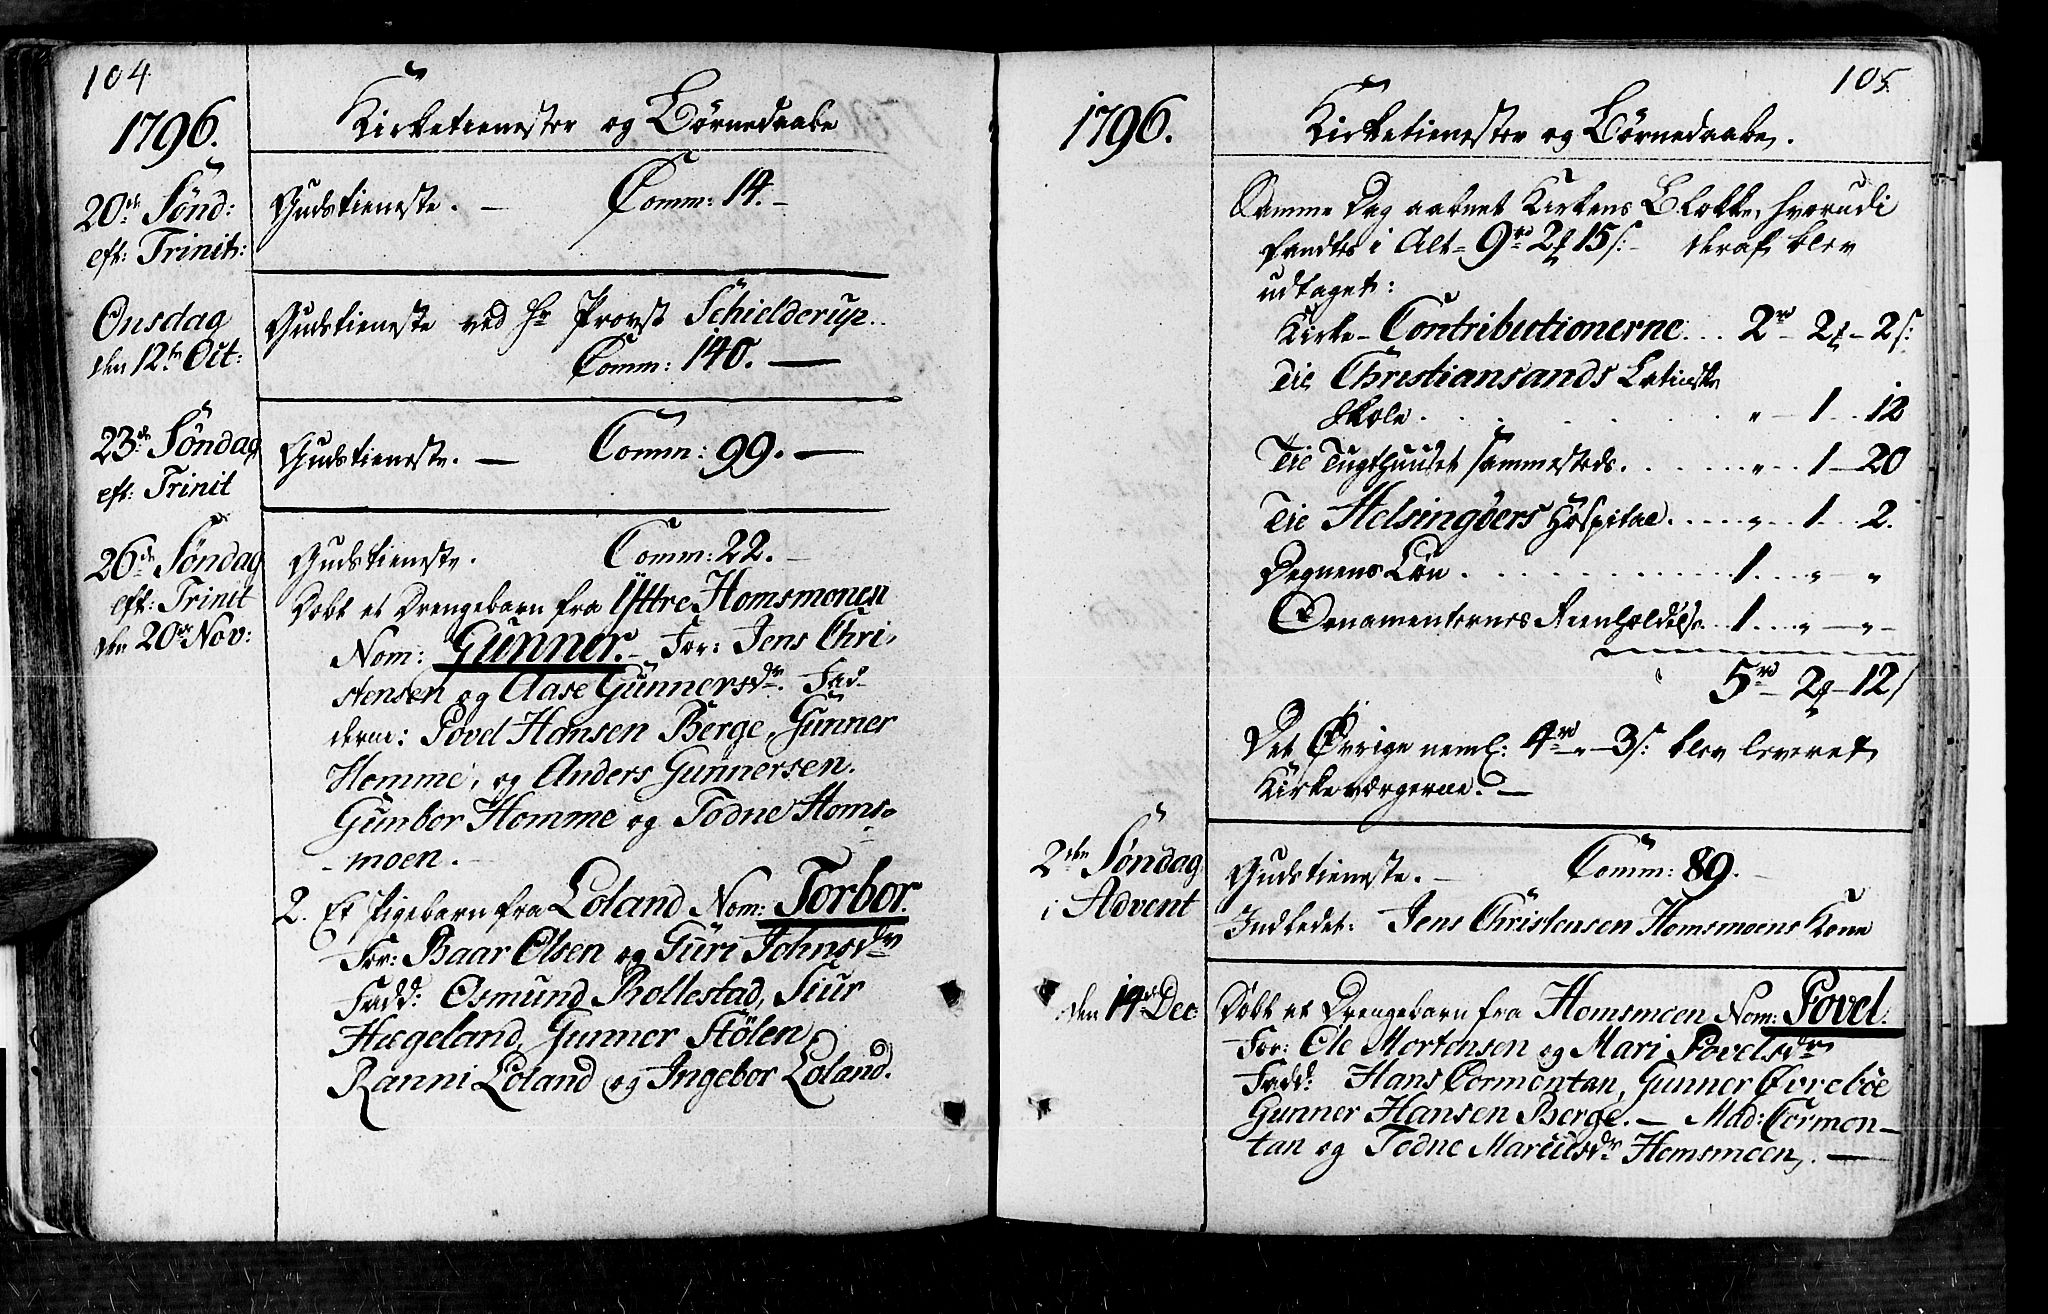 104.
1796.
Kirketienester og Børnedaabe
20de Sønd:
eft: Trinit:
Gudstieneste. — Comm: 14. –
Onsdag
den 12te Oct:
Gudstieneste ved Hr Provst Schielderup..
Comm: 140. —
23de Søndag
eft: Trinit
Gudstieneste. — Comm: 99. —
26de Søndag
eft: Trinit
den 20de Nov:
Gudstieneste. Comm: 22. –
Døbt et Drengebarn fra Ÿttre Homsmonen
Nom: Gunner. – For: Jens Chri-
stensen og Aase Gunnersdr. Fad-
derne: Povel Hansen Berge, Gunner
Homme, og Anders Gunnersen.
Gunbor Homme og Todne Homs-
- moen. –
2. Et Pigebarn fra Loland Nom: Torbor.
For: Baar Olsen og Guri Johnsdr
Fadd: Osmund Rollestad, Siur
Hægeland, Gunner Stølen
Ranni Loland og Ingebor Loland.
105.
1796.
Kirketienester og Børnedaabe.
Samme Dag aabnet Kirkens Blokke, hvorudi
fandtes i Alt - 9rd 2f 15s: - deraf blev
udtaget:
Kirke-Contributionerne... 2rd – 2f – 2s:
Til Christiansands Latinske
Skole . . . . . . . „ – 1 .. 12
Til Tugthuuset sammesteds. . . . . . „ . . 1 – 20
Til Helsingøers Hospital. . . . . „ . . 1 . . 2.
Degnens Løn . . . . . . . . . . . 1 . . „ – „
Ornamenternes Reenholdelse . . 1 . . „ – „ –
5rd – 2f – 12s
Det Øvrige neml: 4rd – „ – 3s: blev leveret
Kirkeværgerne. —
2den Søndag
i Advent
Gudstieneste. – Comm: 89. –
Indledet: Jens Christensen Homsmoens Kone
den 14de Dec:
Døbt et Drengebarn fra Homsmoen Nom: Povel.
For: Ole Mortensen og Mari Povelsdr
Fadd: Hans Cormontan, Gunner Øvrebøe
Gunner Hansen Berge. — Mad: Cormon-
tan og Todne Marcusdr Homsmoen. —